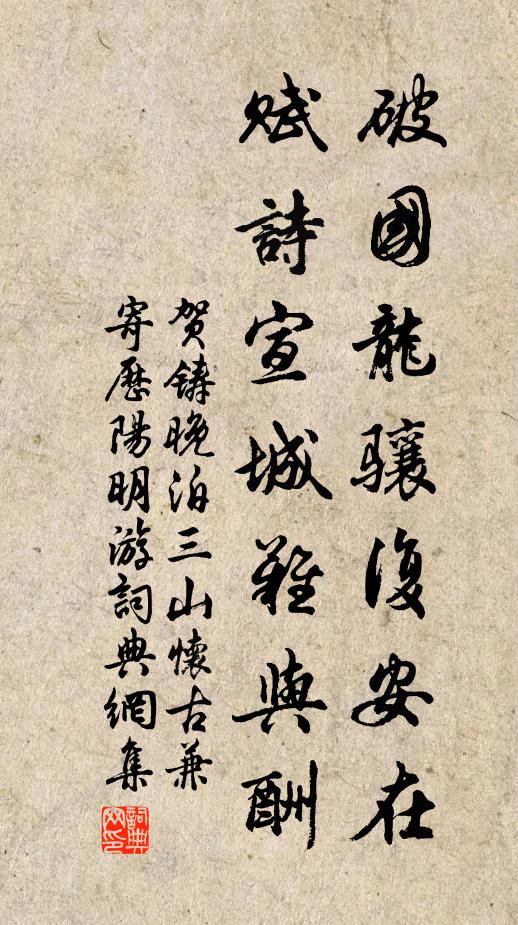 破國龍驤復安在
賦詩宣城難與酬
賀鑄晚泊三山懷古兼
寄歷陽明游詞典網集
詞典
网印